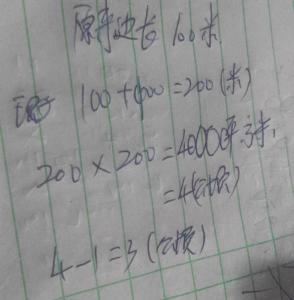 原来边长100米
现在 100+100=200(米)
200×200=40000平方米
=4(公顷)
4-1=3(公顷)